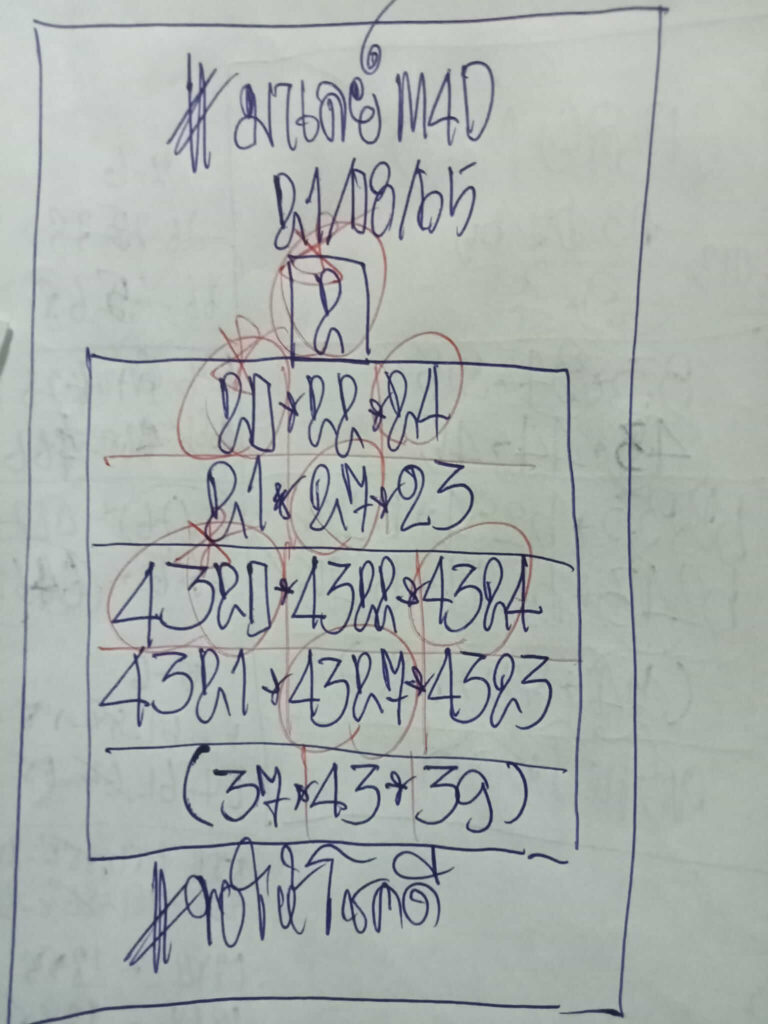 #มาเลย์ M4D
21/08/65
2
20*22*24
21*27*23
4320*4322*4324
4321*4327*4323
(37*43*39)
#ขอให้โชคดี